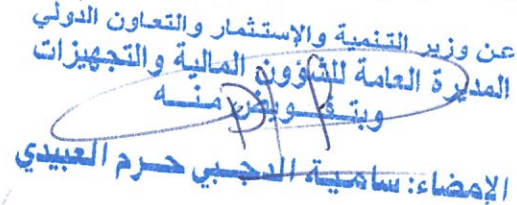 عن وزير التنمية والإستثمار والتعاون الدولي
المديرة العامة للشؤون المالية والتجهيزات
وبتفويض منه
الإمضاء: سامية الدجبي حرم العبيدي